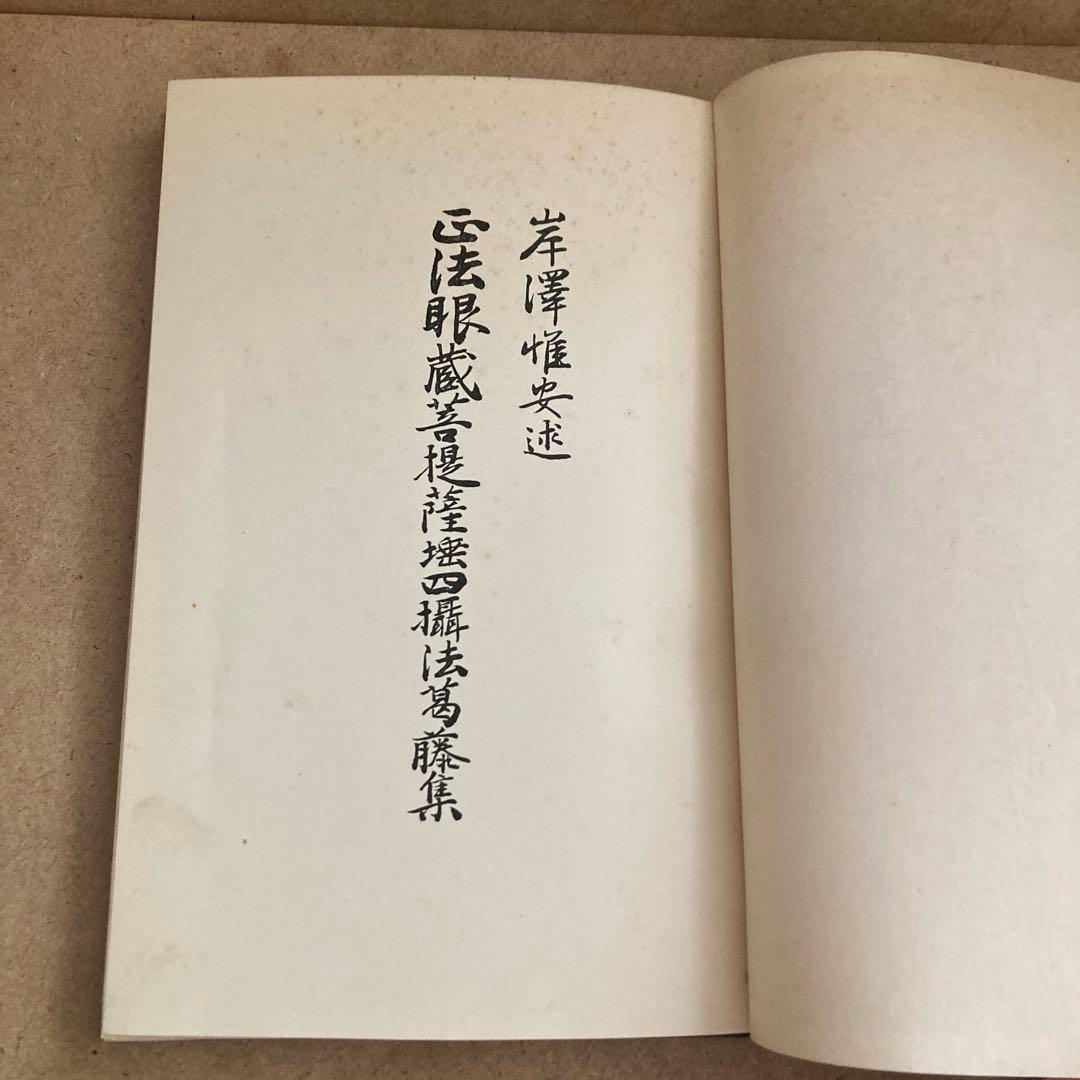 岸澤惟安述
正法眼蔵菩提薩埵四攝法葛藤集